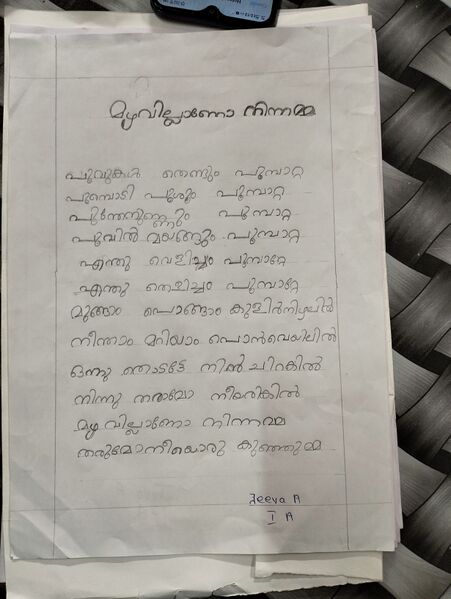 മഴവില്ലാണോ നിന്നമ്മ
പൂവുകൾ തെണ്ടും പൂമ്പാറ്റ
പൂമ്പൊടി പൂശും പൂമ്പാറ്റ
പൂന്തേനുണ്ണും പൂമ്പാറ്റ
പൂവിൽ മയങ്ങും പൂമ്പാറ്റ
എന്തു വെളിച്ചം പൂമ്പാറ്റേ
എന്തു തെളിച്ചം പൂമ്പാറ്റേ
മുങ്ങാം പൊങ്ങാം കുളിർനിഴലിൽ
നീന്താം മറിയാം പൊൻവെയിലിൽ
ഒന്നു തൊടട്ടേ നിൻ ചിറകിൽ
നിന്നു തരാവോ നീയരികിൽ
മഴവില്ലാണോ നിന്നമ്മ
തരുമോനീയൊരു കുഞ്ഞുമ്മ
Jeeva A
I A